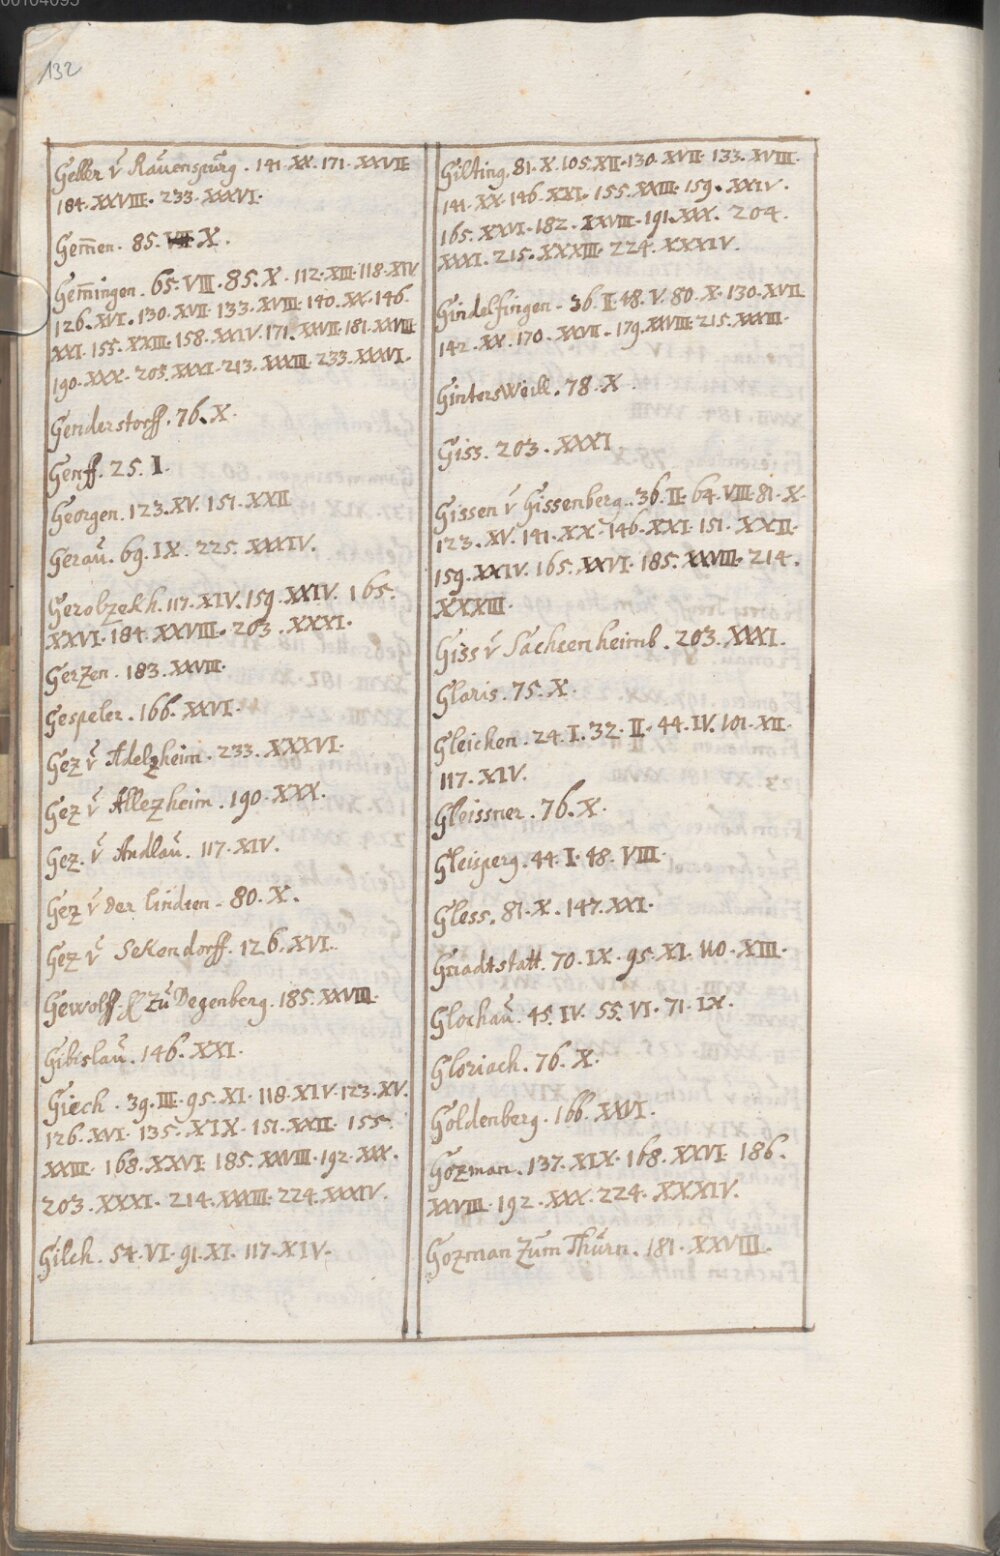 00104095
132
Geller v̄ Rauenspurg. 141. XX. 171. XXVII.
184. XXVIII. 233. XXXVI.
Gem̄en. 85. X.
Gem̄ingen. 65. VIII. 85. X. 112. XIII. 118. XIV
126. XVI. 130. XVII. 133. XVIII. 140. XX. 146.
XXI. 155. XXIII. 158. XXIV. 171. XXVII. 181. XXVIII
190. XXX. 205. XXXI. 213. XXXIII. 233. XXXVI.
Genderstorff. 76. X.
Genff. 25. I.
Georgen. 123. XV. 151. XXII
Gerau. 69. IX. 225. XXXIV.
Gerolzekh. 117. XIV. 159. XXIV. 165.
XXVI. 184. XXVIII. 203. XXXI.
Gerzen. 183. XXVIII.
Gespeler. 166. XXVI.
Gez v̄ Adelzheim. 233. XXXVI.
Gez v̄ Allezheim. 190. XXX.
Gez. v̄ Andlau. 117. XIV.
Gez v̄ der lindten. 80. X.
Gez v̄ Sekendorff. 126. XVI.
Gewolff zu Degenberg. 185. XXVIII
Gibislau. 146. XXI.
Giech. 39. III. 95. XI. 118. XIV. 123. XV.
126. XVI. 135. XIX. 151. XXII. 155.
XXIII. 168. XXVI. 185. XXVIII. 192. XXX.
203. XXXI. 214. XXXIII. 224. XXXIV.
Gilch. 54. VI. 91. XI. 117. XIV.
Gilting. 81. X. 105. XII. 130. XVII. 133. XVIII.
141. XX. 146. XXI. 155. XXIII. 159. XXIV.
165. XXVI. 182. XXVIII. 191. XXX. 204.
XXXI. 215. XXXIII. 224. XXXIV.
Gindelfingen. 36. II. 48. V. 80. X. 130. XVII
142. XX. 170. XXVII. 179. XXVIII. 215. XXXIII.
Gintersweill. 78. X
Giss. 203. XXXI
Gissen v̄ Gissenberg. 36. II. 64. VIII. 81. X.
123. XV. 141. XX. 146. XXI. 151. XXII.
159. XXIV. 165. XXVI. 185. XXVIII. 214.
XXXIII.
Giss v̄ Sachsenheimb. 203. XXXI.
Glaris. 75. X.
Gleichen. 24. I. 32. II. 44. IV. 101. XII.
117. XIV.
Gleissner. 76. X.
Gleisperg. 44. I. 48. VIII.
Gless. 81. X. 147. XXI.
Gnadtstatt. 70. IX. 95. XI. 110. XIII.
Glochau. 45. IV. 55. VI. 71. IX.
Gloriach. 76. X.
Goldenberg. 166. XXVI.
Gozman. 137. XIX. 168. XXVI. 186.
XXVIII. 192. XXX. 224. XXXIV.
Gozman zum Thurn. 181. XXVIII.